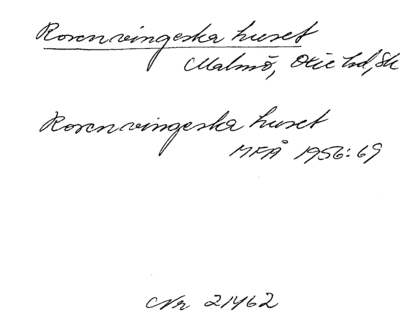 Rosenvingeska huset
Malmö, Oxie hd, Sk
Rosenvingeska huset
MFÅ 1956:69
Nr 21462